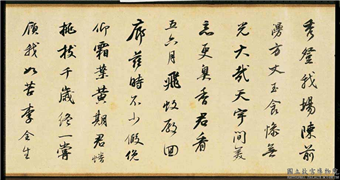 秀發我場陳前
澷方丈玉食慘無
光大哉天宇間美
惡更臭香君看
五六月飛蚊殷回
廊茲時不少假俛
仰霜葉黃期君惜
桃枝千歲終一嘗
顧我如苦李全生
國立故宮博物院